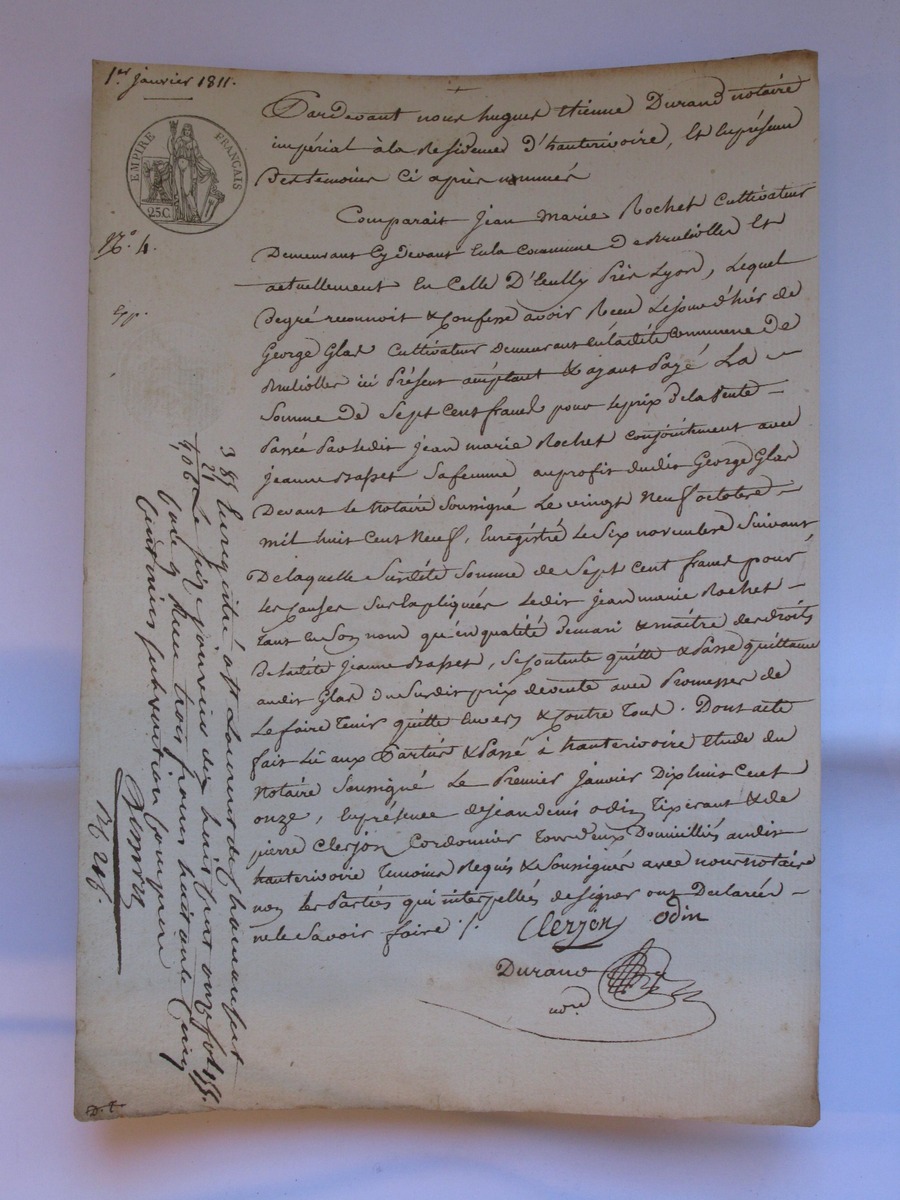 1er Janvier 1811.
EMPIRE FRANÇAIS
25 C.
No. 4.
Pardevant nous hugues Etienne Durand notaire
impérial à la Residence d'hauterivoire, Et En présence
Des temoins Ci après nommés
Comparait Jean Marie Rochet Cultivateur
Demeurant Cy devant En la Commune de Brulioller Et
actuellement En Celle D'Eculy Près Lyon, Lequel
Degré reconnoit & Confesse avoir Recu Lejour d'hier de
George Glas Cultivateur Demeurant En ladite Commune de
Brulioller ici Présent acceptant & ayant Payé La
Somme De Sept Cent francs pour le prix de la Vente
Passée Par ledit Jean marie Rochet Conjointement avec
Jeanne Basset Safemme au profit dudit George Glas
Devant le Notaire Soussigné Le vingt Neuf octobre
mil huit Cent Neuf, Enregistré Le Six novembre Suivant
De laquelle Susdite Somme de Sept Cent francs pour
les Causes Sus Expliquées Ledit Jean marie Rochet
tant En Son nom qu'en qualité de mari & maitre des droits
De ladite Jeanne Basset, Se Contente quitte & Passe quittance
audit Glas du Susdit prix de vente avec Promesses de
Le faire Tenir quitte Envers & Contre Tous. Dont acte
fait Lû aux Parties & Passé à hauterivoire Etude du
Notaire Soussigné Le Premier Janvier Dix huit Cent
onze, En présence de Jean denis odin Tixerant & de
pierre Clerjon Cordonnier Tous deux Domiciliés audit
hauterivoire Temoins Requis & Soussignés avec nous notaire
non les Parties qui interpellées de signer ont Déclaré
ne le Savoir faire ./.
Clerjon odin
Durand
nore
Enregistré à St Laurent de Chamousset
Le six janvier dix huit Cent onze fol. 
Reçu trois francs huitante Cinq
Centimes Subvention Comprise
D. T.